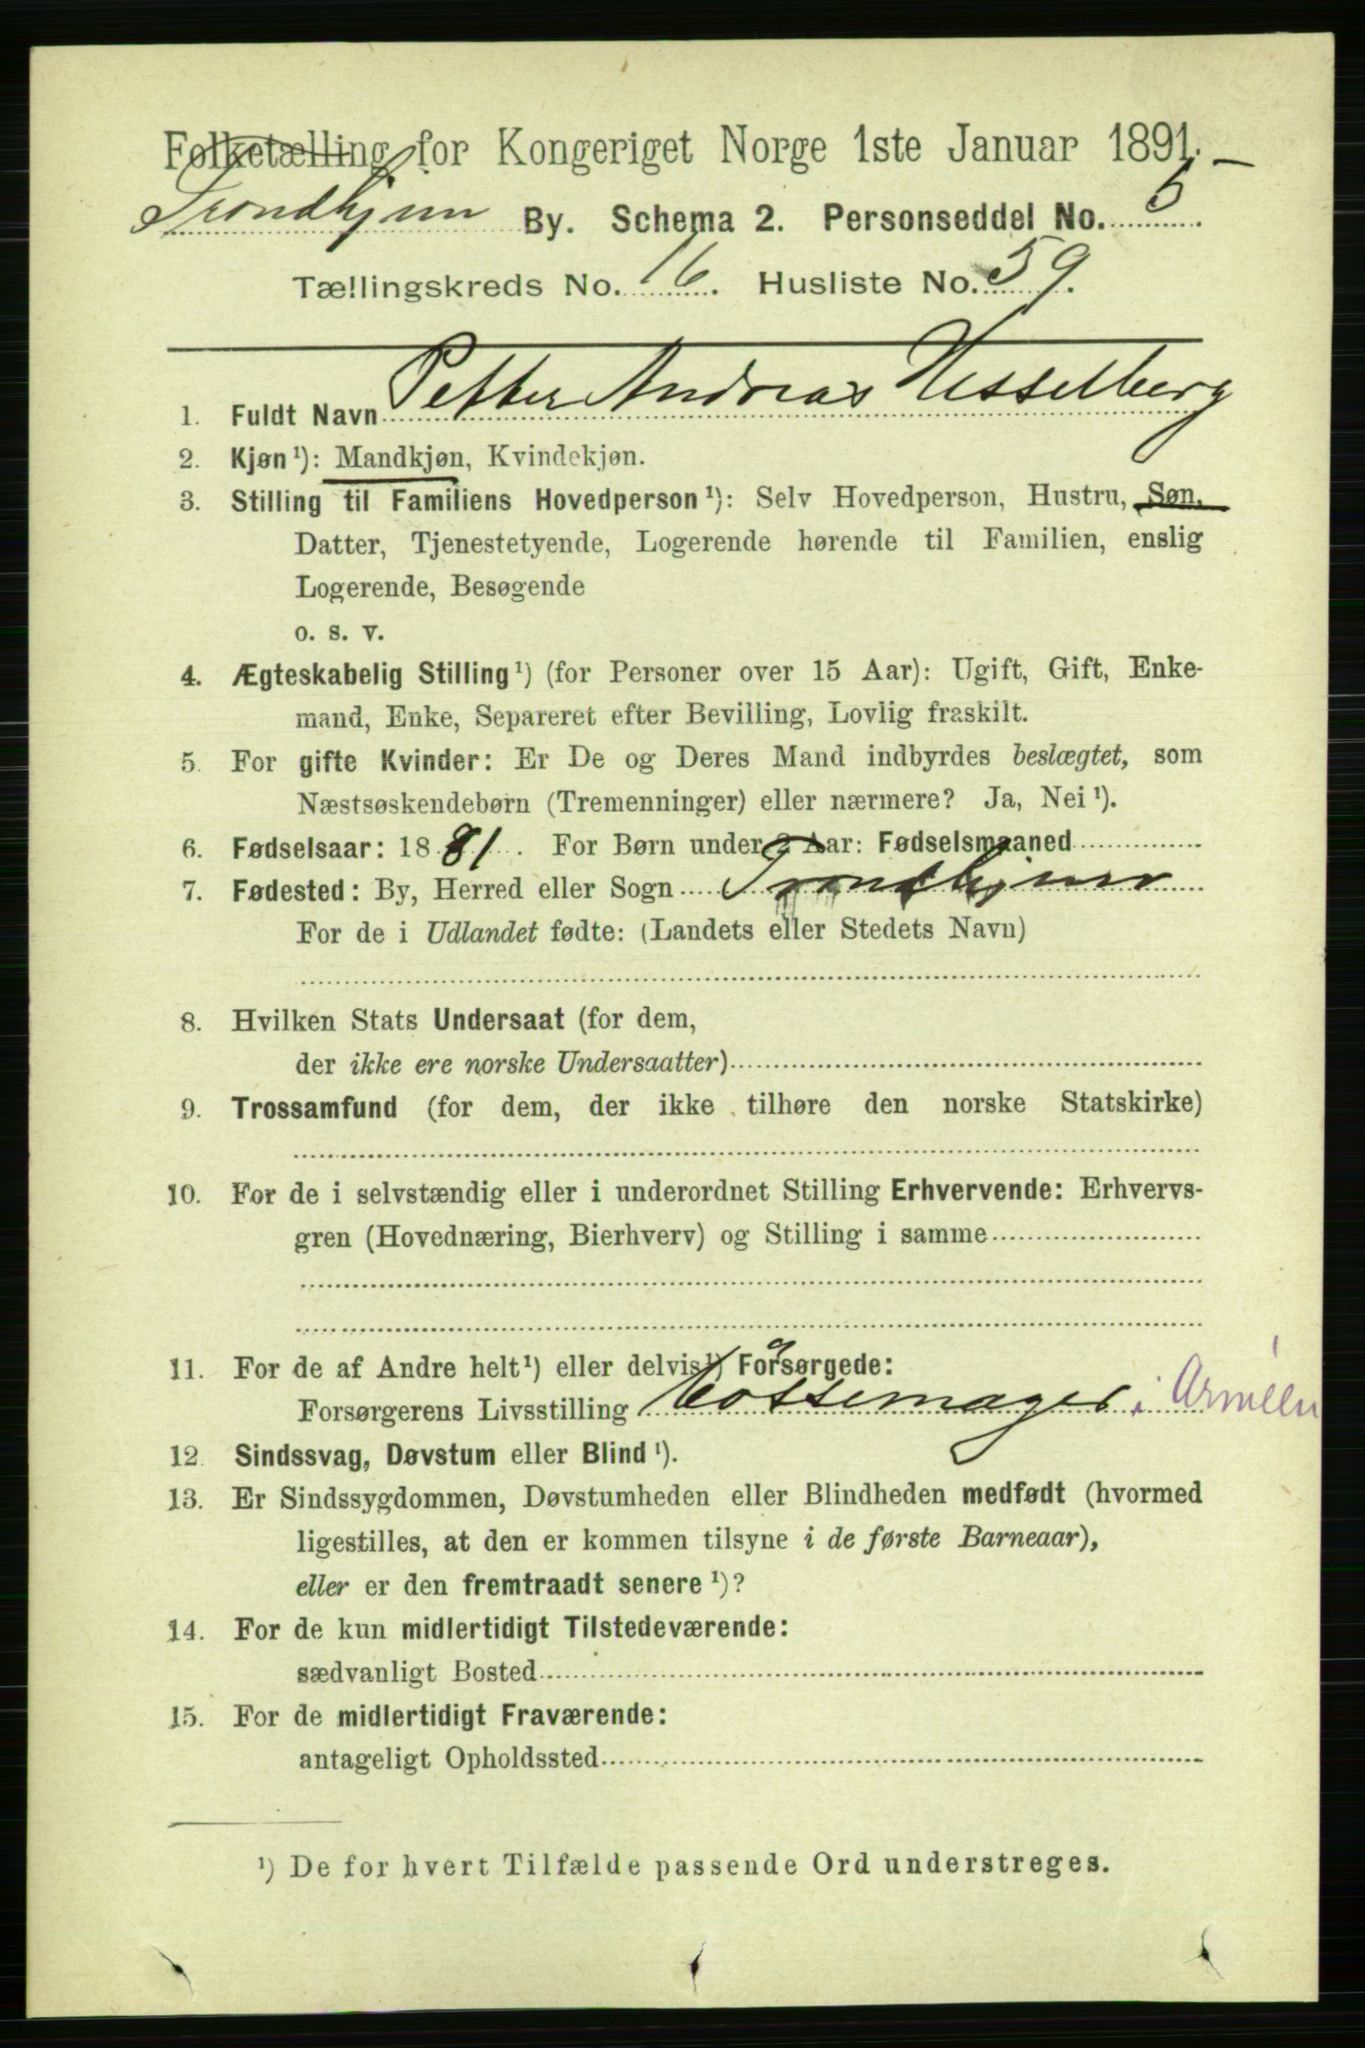 Folketælling for Kongeriget Norge 1ste Januar 1891.
Trondhjem By. Schema 2. Personseddel No. 5
Tællingskreds No. 16. Husliste No. 59.
1. Fuldt Navn Petter Andreas Hesselberg
2. Kjøn¹): Mandkjøn, Kvindekjøn.
3. Stilling til Familiens Hovedperson¹): Selv Hovedperson, Hustru, Søn,
Datter, Tjenestetyende, Logerende hørende til Familien, enslig
Logerende, Besøgende
o. s. v.
4. Ægteskabelig Stilling¹) (for Personer over 15 Aar): Ugift, Gift, Enke-
mand, Enke, Separeret efter Bevilling, Lovlig fraskilt.
5. For gifte Kvinder: Er De og Deres Mand indbyrdes beslægtet, som
Næstsøskendebørn (Tremenninger) eller nærmere? Ja, Nei¹).
6. Fødselsaar: 1881. For Børn under 2 Aar: Fødselsmaaned
7. Fødested: By, Herred eller Sogn Trondhjem
For de i Udlandet fødte: (Landets eller Stedets Navn)
8. Hvilken Stats Undersaat (for dem,
der ikke ere norske Undersaatter)
9. Trossamfund (for dem, der ikke tilhøre den norske Statskirke)
10. For de i selvstændig eller i underordnet Stilling Erhvervende: Erhvervs-
gren (Hovednæring, Bierhverv) og Stilling i samme
11. For de af Andre helt¹) eller delvis¹) Forsørgede:
Forsørgerens Livsstilling i Arméen
12. Sindssvag, Døvstum eller Blind¹).
13. Er Sindssygdommen, Døvstumheden eller Blindheden medfødt (hvormed
ligestilles, at den er kommen tilsyne i de første Barneaar),
eller er den fremtraadt senere¹)?
14. For de kun midlertidigt Tilstedeværende:
sædvanligt Bosted
15. For de midlertidigt Fraværende:
antageligt Opholdssted
¹) De for hvert Tilfælde passende Ord understreges.